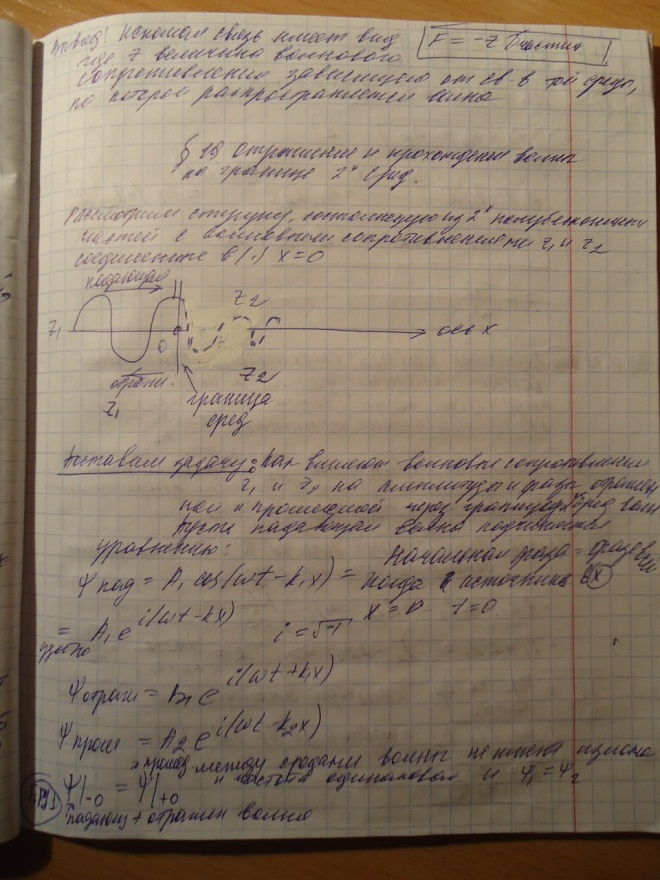 Вывод! Искомая связь имеет вид F = -Z
где Z величина волнового
сопротивления зависящая от св-в той среды,
по которой распространяется волна
§ 19 Отражение и прохождение волны
на границе 2х сред.
Рассмотрим струну, состоящую из 2х полубесконечных
частей с волновыми сопротивлениями z1 и z2
соединённые в (·) x = 0
падающая
Z2
Z1
0
ось x
Z2
отраж.
граница
Z1
сред
Поставим задачу: Как влияют волновые сопротивления
z1 и z2 на амплитуды и фазы отражен
ной и прошедшей через границу сред волн
Пусть падающая волна подчиняется
уравнению:
Начальная фаза = фаза
Ψпад = A1 cos(ωt - k1x) =
когда источник в x
x = 0 t = 0
= A1 e^i(ωt - kx) i = √-1
Ψотраж = B1 e^i(ωt + k1x)
Ψпрош = A2 e^i(ωt - k2x)
между средами волны не имеет
и частота одинаковая и Ψ1 = Ψ2
ГРУ1 Ψ|-0 = Ψ|+0
падающ + отражен волна